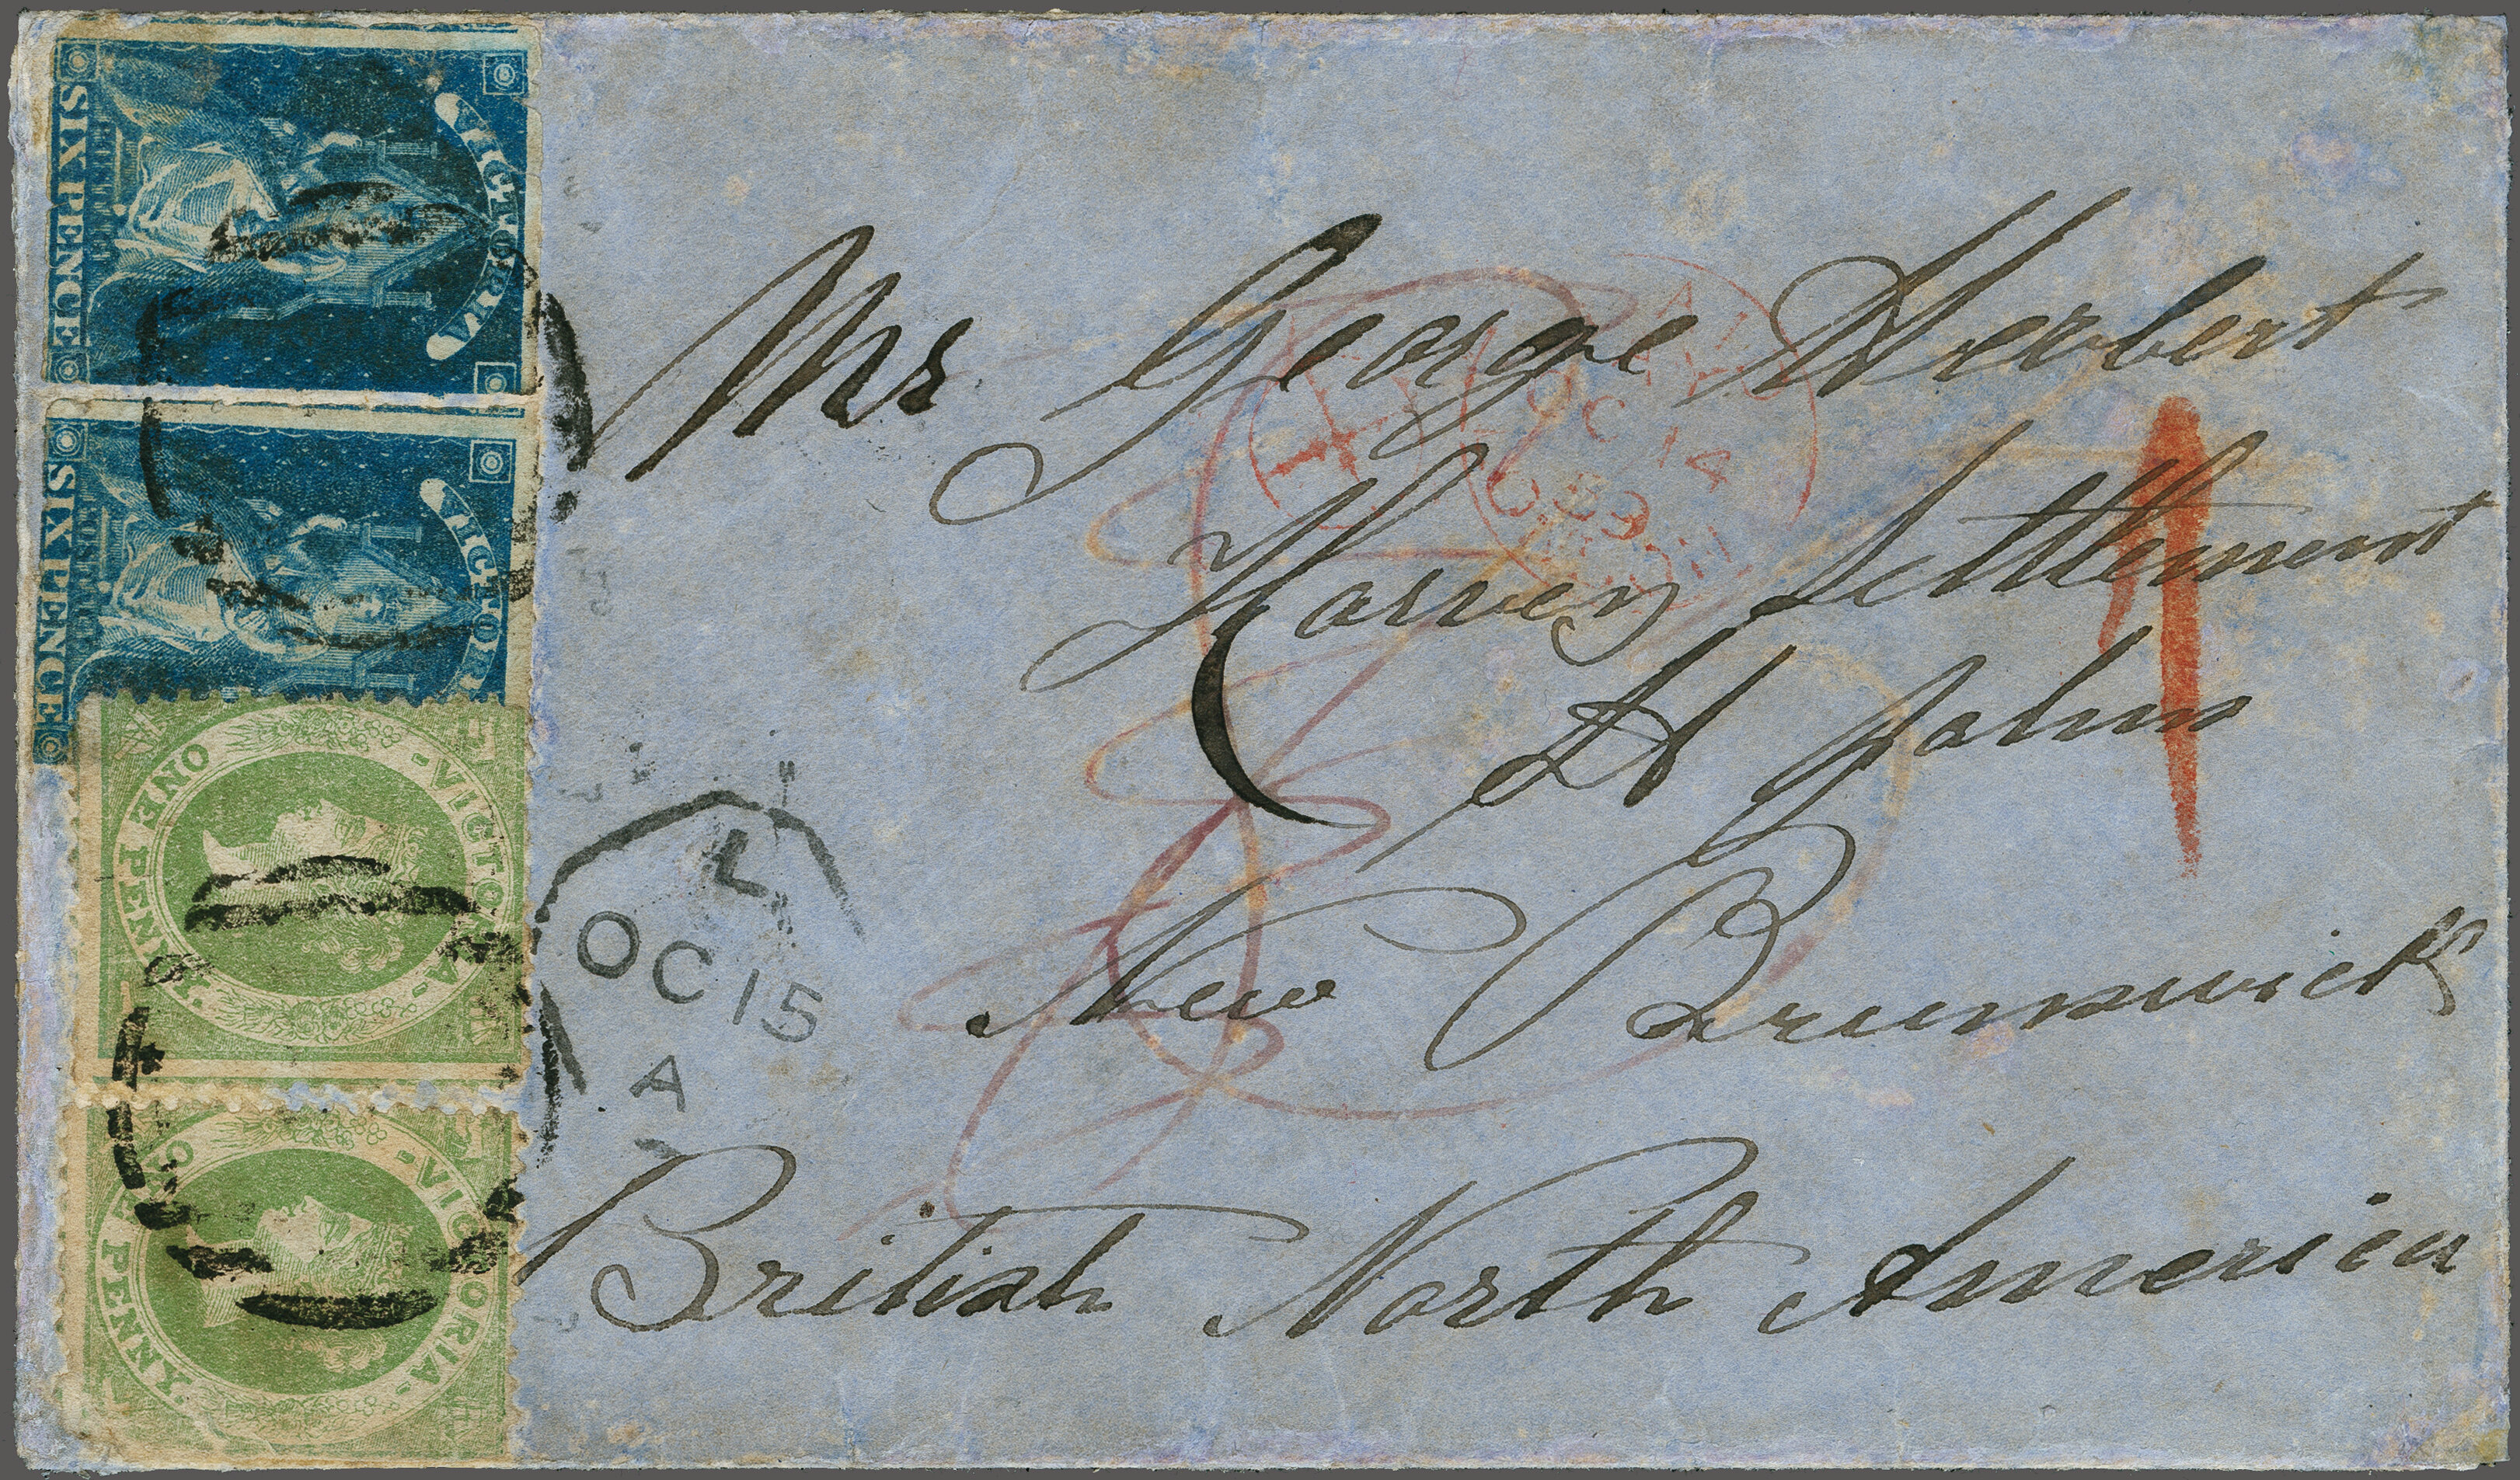 VICTORIA
SIX PENCE
VICTOR
SIX PENCE
VICTORIA
ONE PENNY
VICTORIA
PENNY
Mr George Herbert
Harvey Settlement
St John
New Brunswick
British North America
PAID
OC 14
59
L
OC 15
A
1